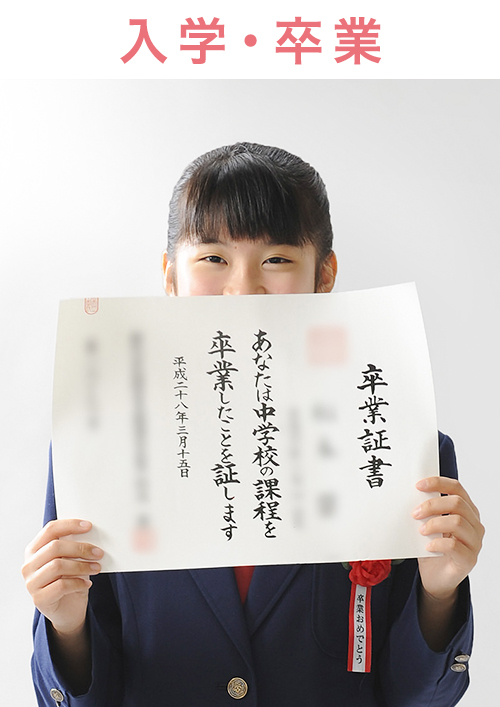 入学・卒業
卒業証書
あなたは中学校の課程を
卒業したことを証します
平成二十八年三月十五日
卒業おめでとう